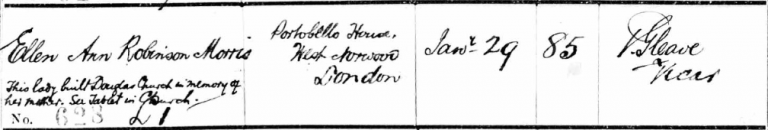 Ellen Ann Robinson Morris
This lady built Douglas Church in memory of
her mother. See Tablet in Church.
No. 628
Portobello House,
West Norwood
London
Jany 29
85
Gleave
Vicar